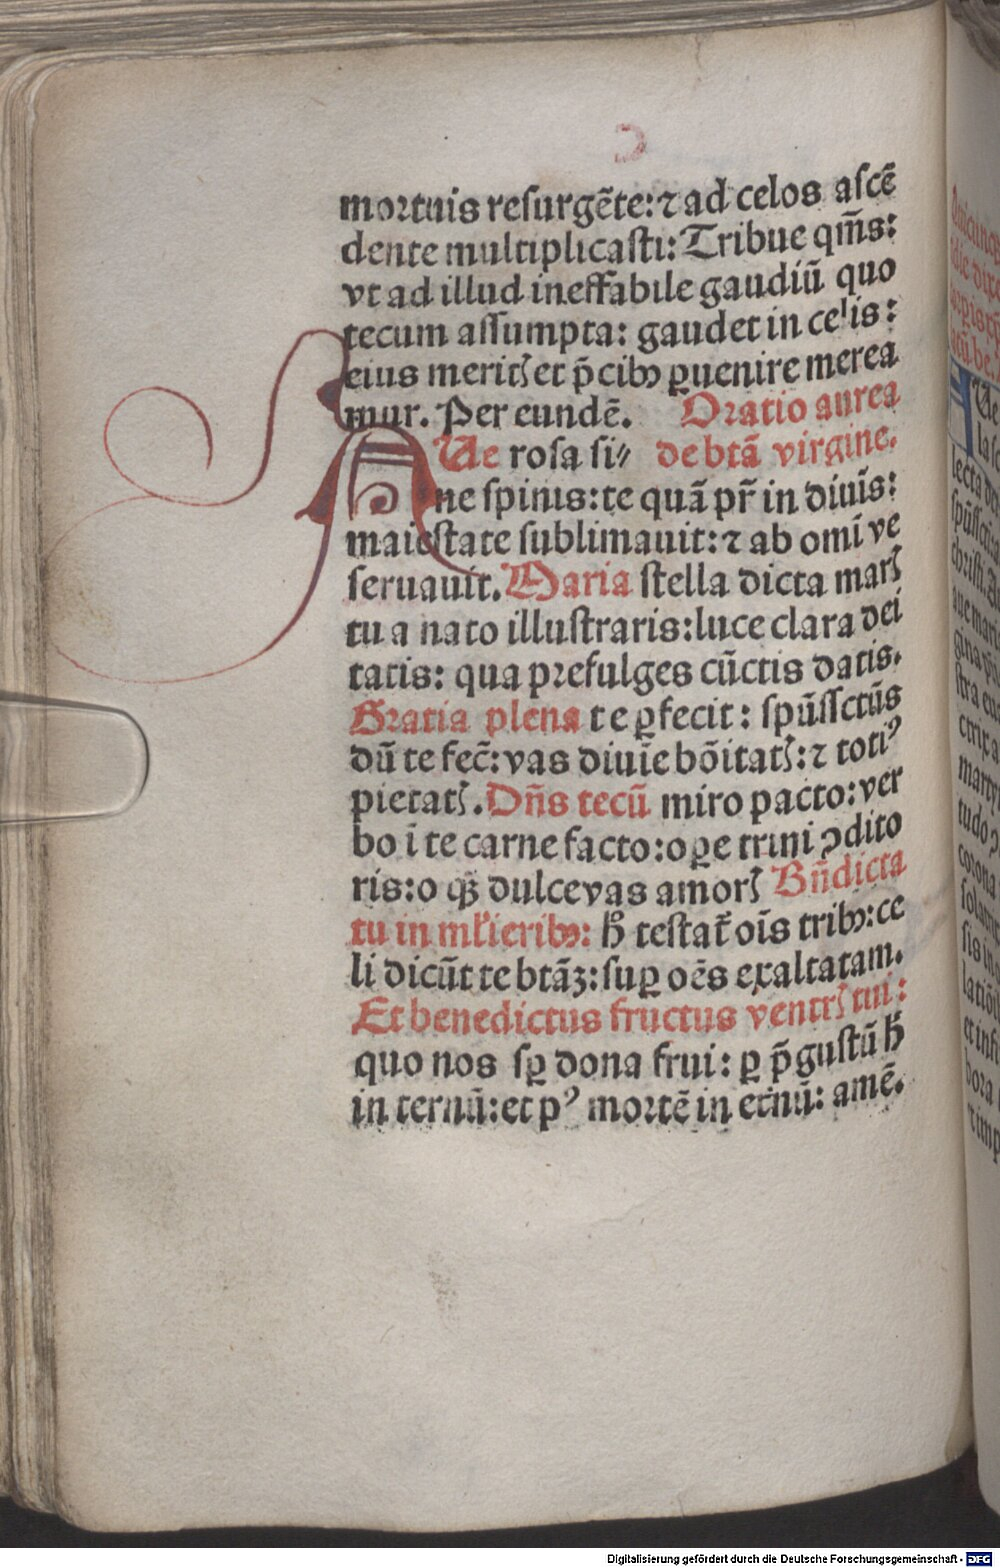 mortuis resurgēte: ⁊ ad celos ascē
dente multiplicasti: Tribue qm̄s:
vt ad illud ineffabile gaudiū quo
tecum assumpta: gaudet in celis:
eius meritꝭ et p̄cibꝫ ꝑuenire merea
mur. Per eundē. Oratio aurea
AUe rosa si⸗ de btā virgine.
ne spinis: te quā pr̄ in diuis:
maiestate sublimauit: ⁊ ab omī ve
seruauit. Maria stella dicta marꝭ
tu a nato illustraris: luce clara dei
tatis: qua prefulges cūctis datis.
Gratia plena te ꝑfecit: spūssctūs
dū te fec̄: vas diuīe bōitatꝭ: ⁊ totiꝰ
pietatꝭ. Dn̄s tecū miro pacto: ver
bo ī te carne facto: oꝑe trini ↄdito
ris: o qꝫ dulce vas amorꝭ Bn̄dicta
tu in ml̄ieribꝫ: h̄ testat̄ oīs tribꝫ: ce
li dicūt te btāꝫ: suꝑ oēs exaltatam.
Et benedictus fructus ventrꝭ tui:
quo nos sꝑ dona frui: ꝑ p̄gustū h̄
in ternū: et pꝰ mortē in et̄nū: amē.
Digitalisierung gefördert durch die Deutsche Forschungsgemeinschaft - DFG